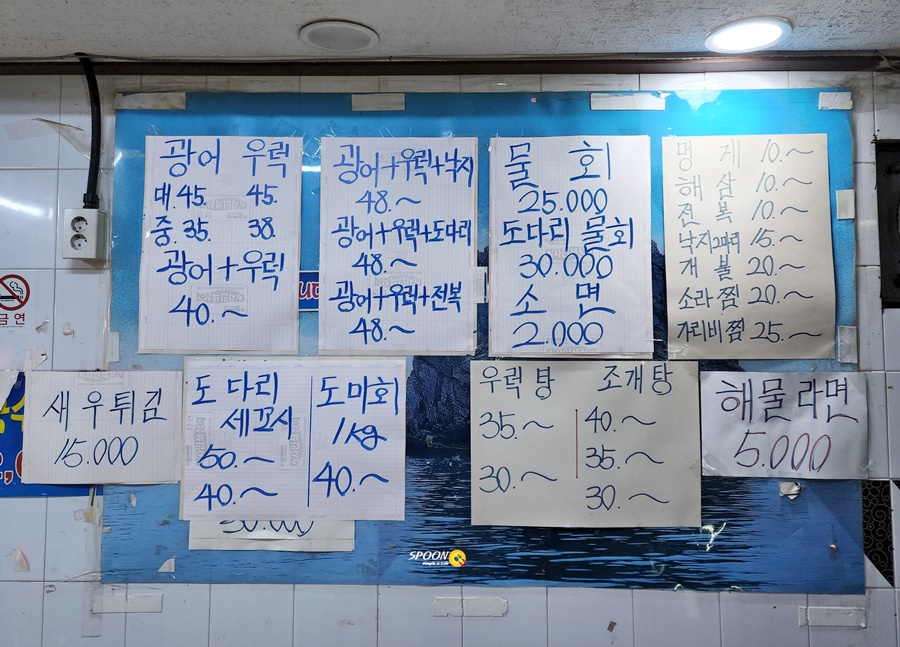 광어 우럭
대.45. 45.
중.35. 38.
광어+우럭
40.~
광어+우럭+낙지
48.~
광어+우럭+도다리
48.~
광어+우럭+전복
48.~
물 회
25.000
도다리 물회
30.000
소 면
2.000
멍 게 10.~
해 삼 10.~
전 복 10.~
낙지2마리 15.~
개 불 20.~
소라찜 20.~
가리비찜 25.~
새우튀김
15.000
도다리
세꼬시
50.~
40.~
도미회
1kg
40.~
우럭탕
35.~
30.~
조개탕
40.~
35.~
30.~
해물라면
5.000
30.000
금연
SPOON